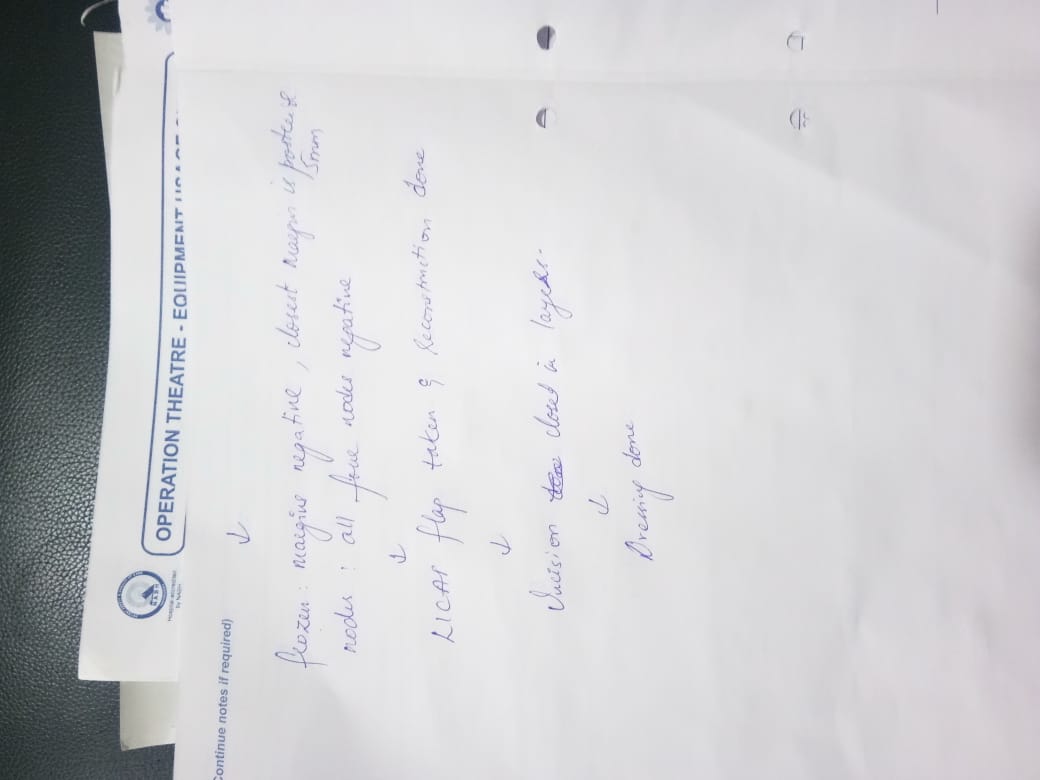 OPERATION THEATRE - EQUIPMENT
NABH
(Continue notes if required)
↓
frozen: margins negative, closest margin is posterior
5mm
nodes: all four nodes negative
↓
LICAP flap taken & Reconstruction done
↓
Incision closed in layers.
↓
Dressing done